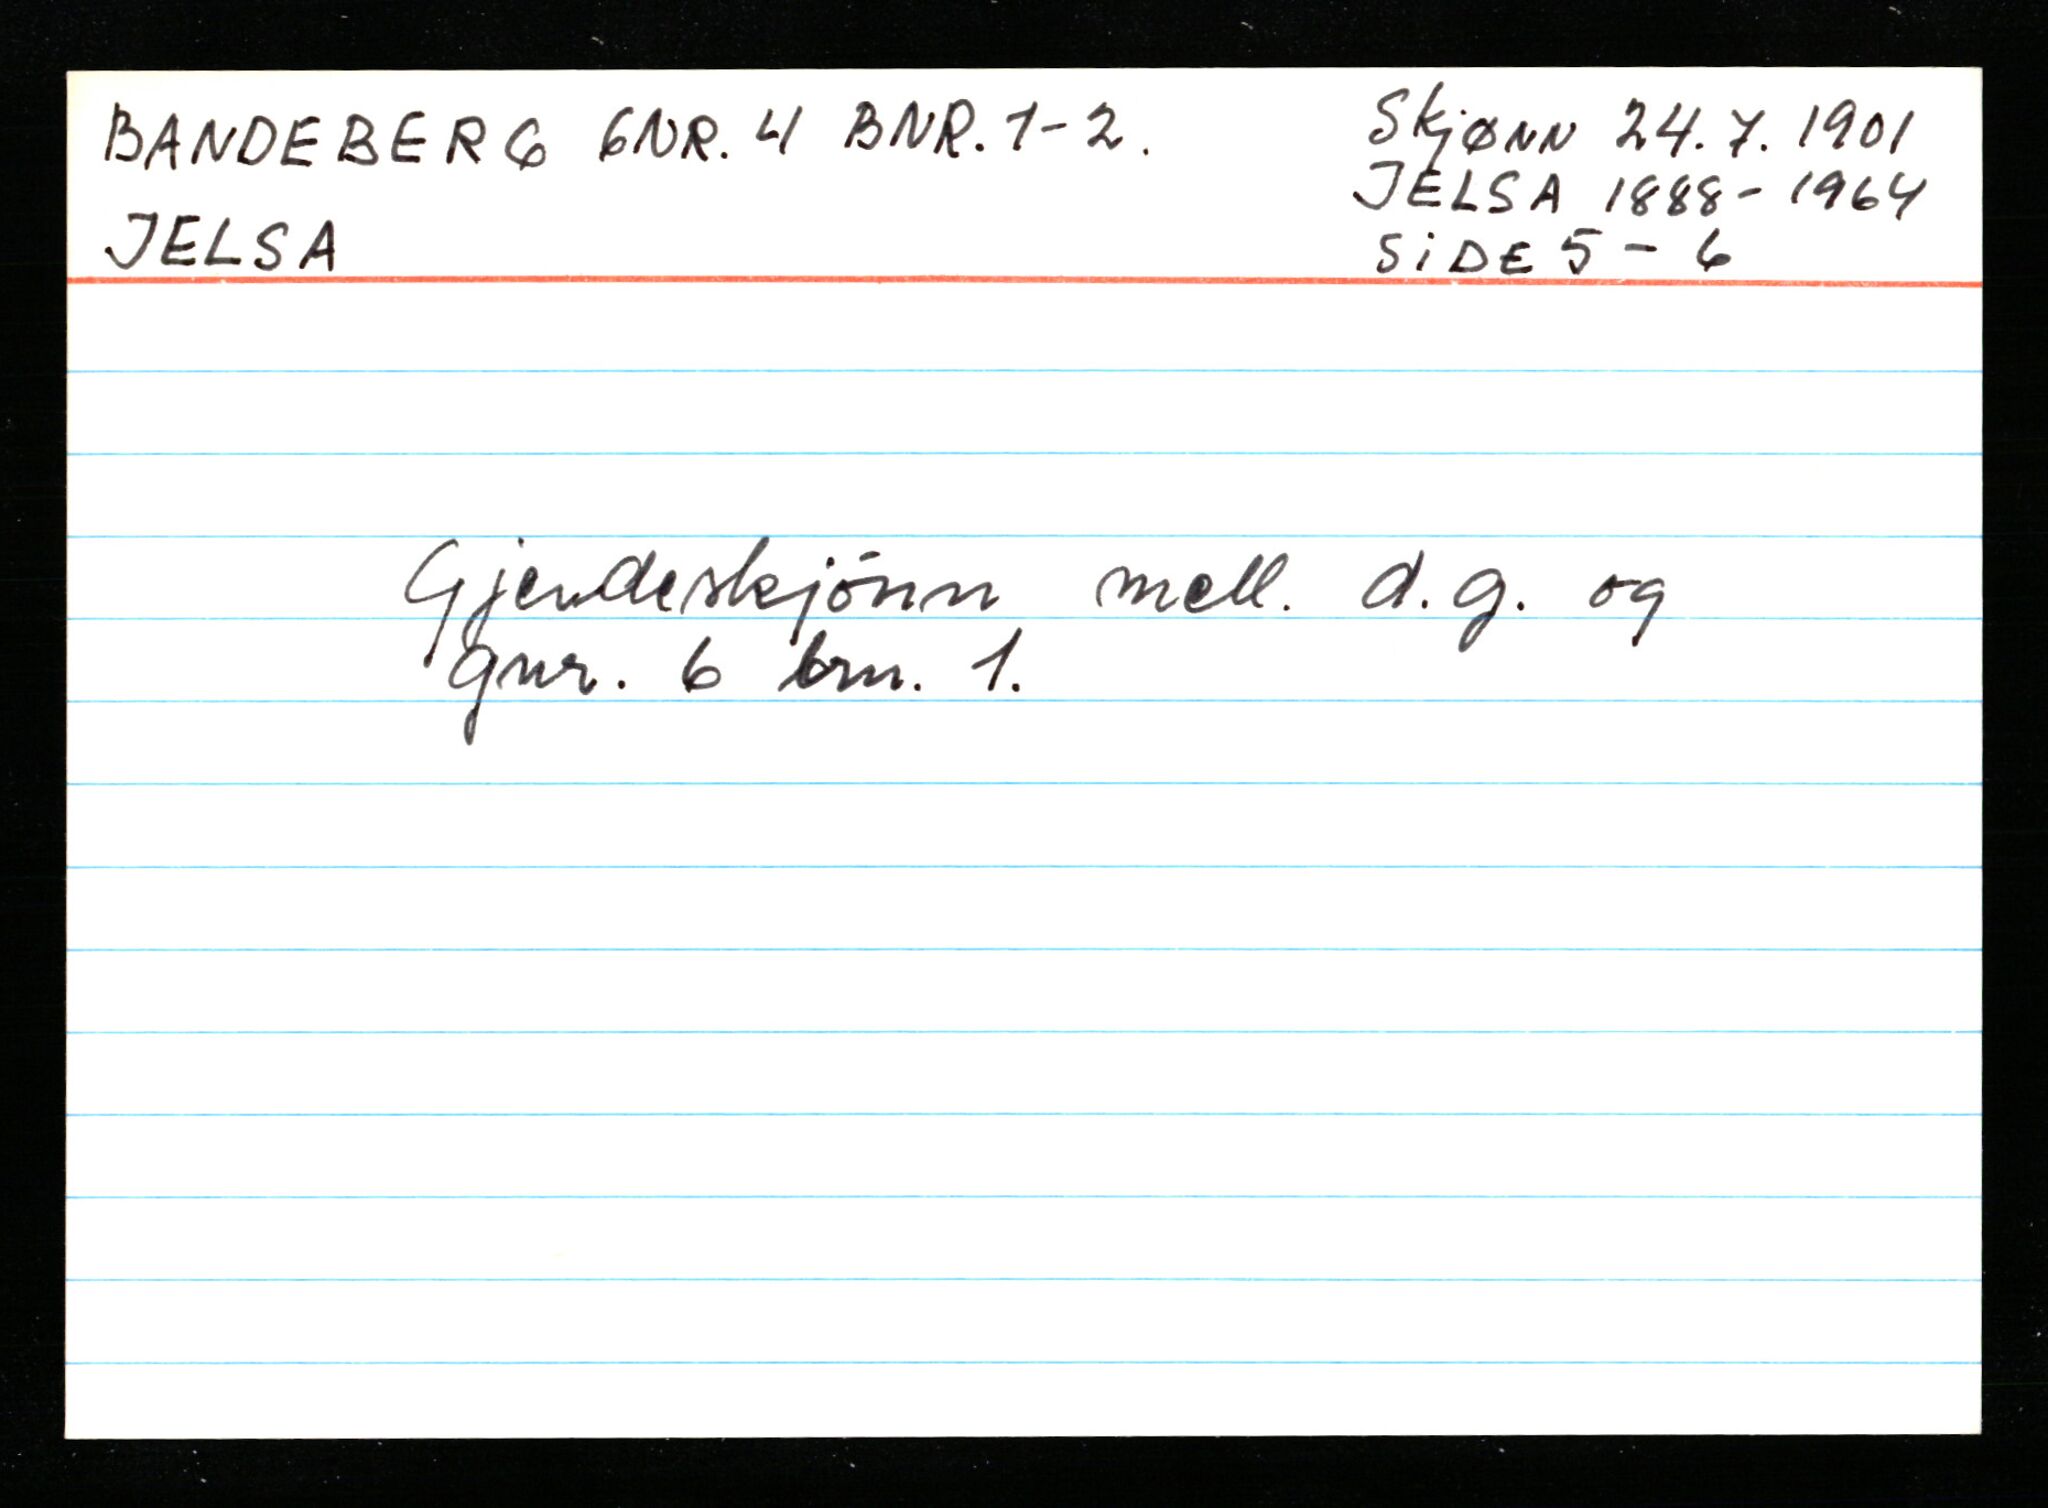 BANDEBERG GNR. 4 BNR. 1-2.
JELSA
Skjønn 24.7.1901
JELSA 1888-1964
SIDE 5-6
Gjerdeskjönn mell. d.g. og
gnr. 6 brn. 1.